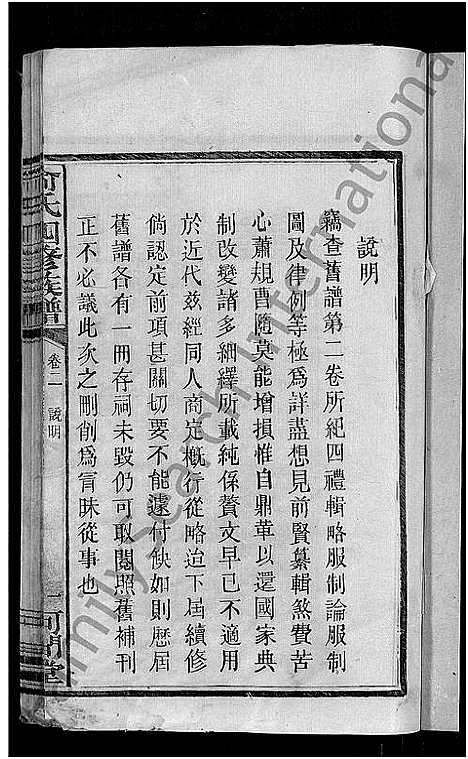 說明
竊查舊譜第二卷所紀四禮輯略服制論服制
圖及律例等極爲詳盡想見前賢纂輯煞費苦
心蕭規曹隨莫能增損惟自鼎革以還國家典
制改變諸多細繹所載純係贅文早已不適用
於近代茲經同人商定槪行從略迨下屆續修
倘認定前項甚關切要不能遽付倐如則歷屆
舊譜各有一冊存祠未毀仍可取閱照舊補刊
正不必議此次之刪削爲冒昧從事也
氏四修族譜
卷二
說明
河間堂
Family Search International